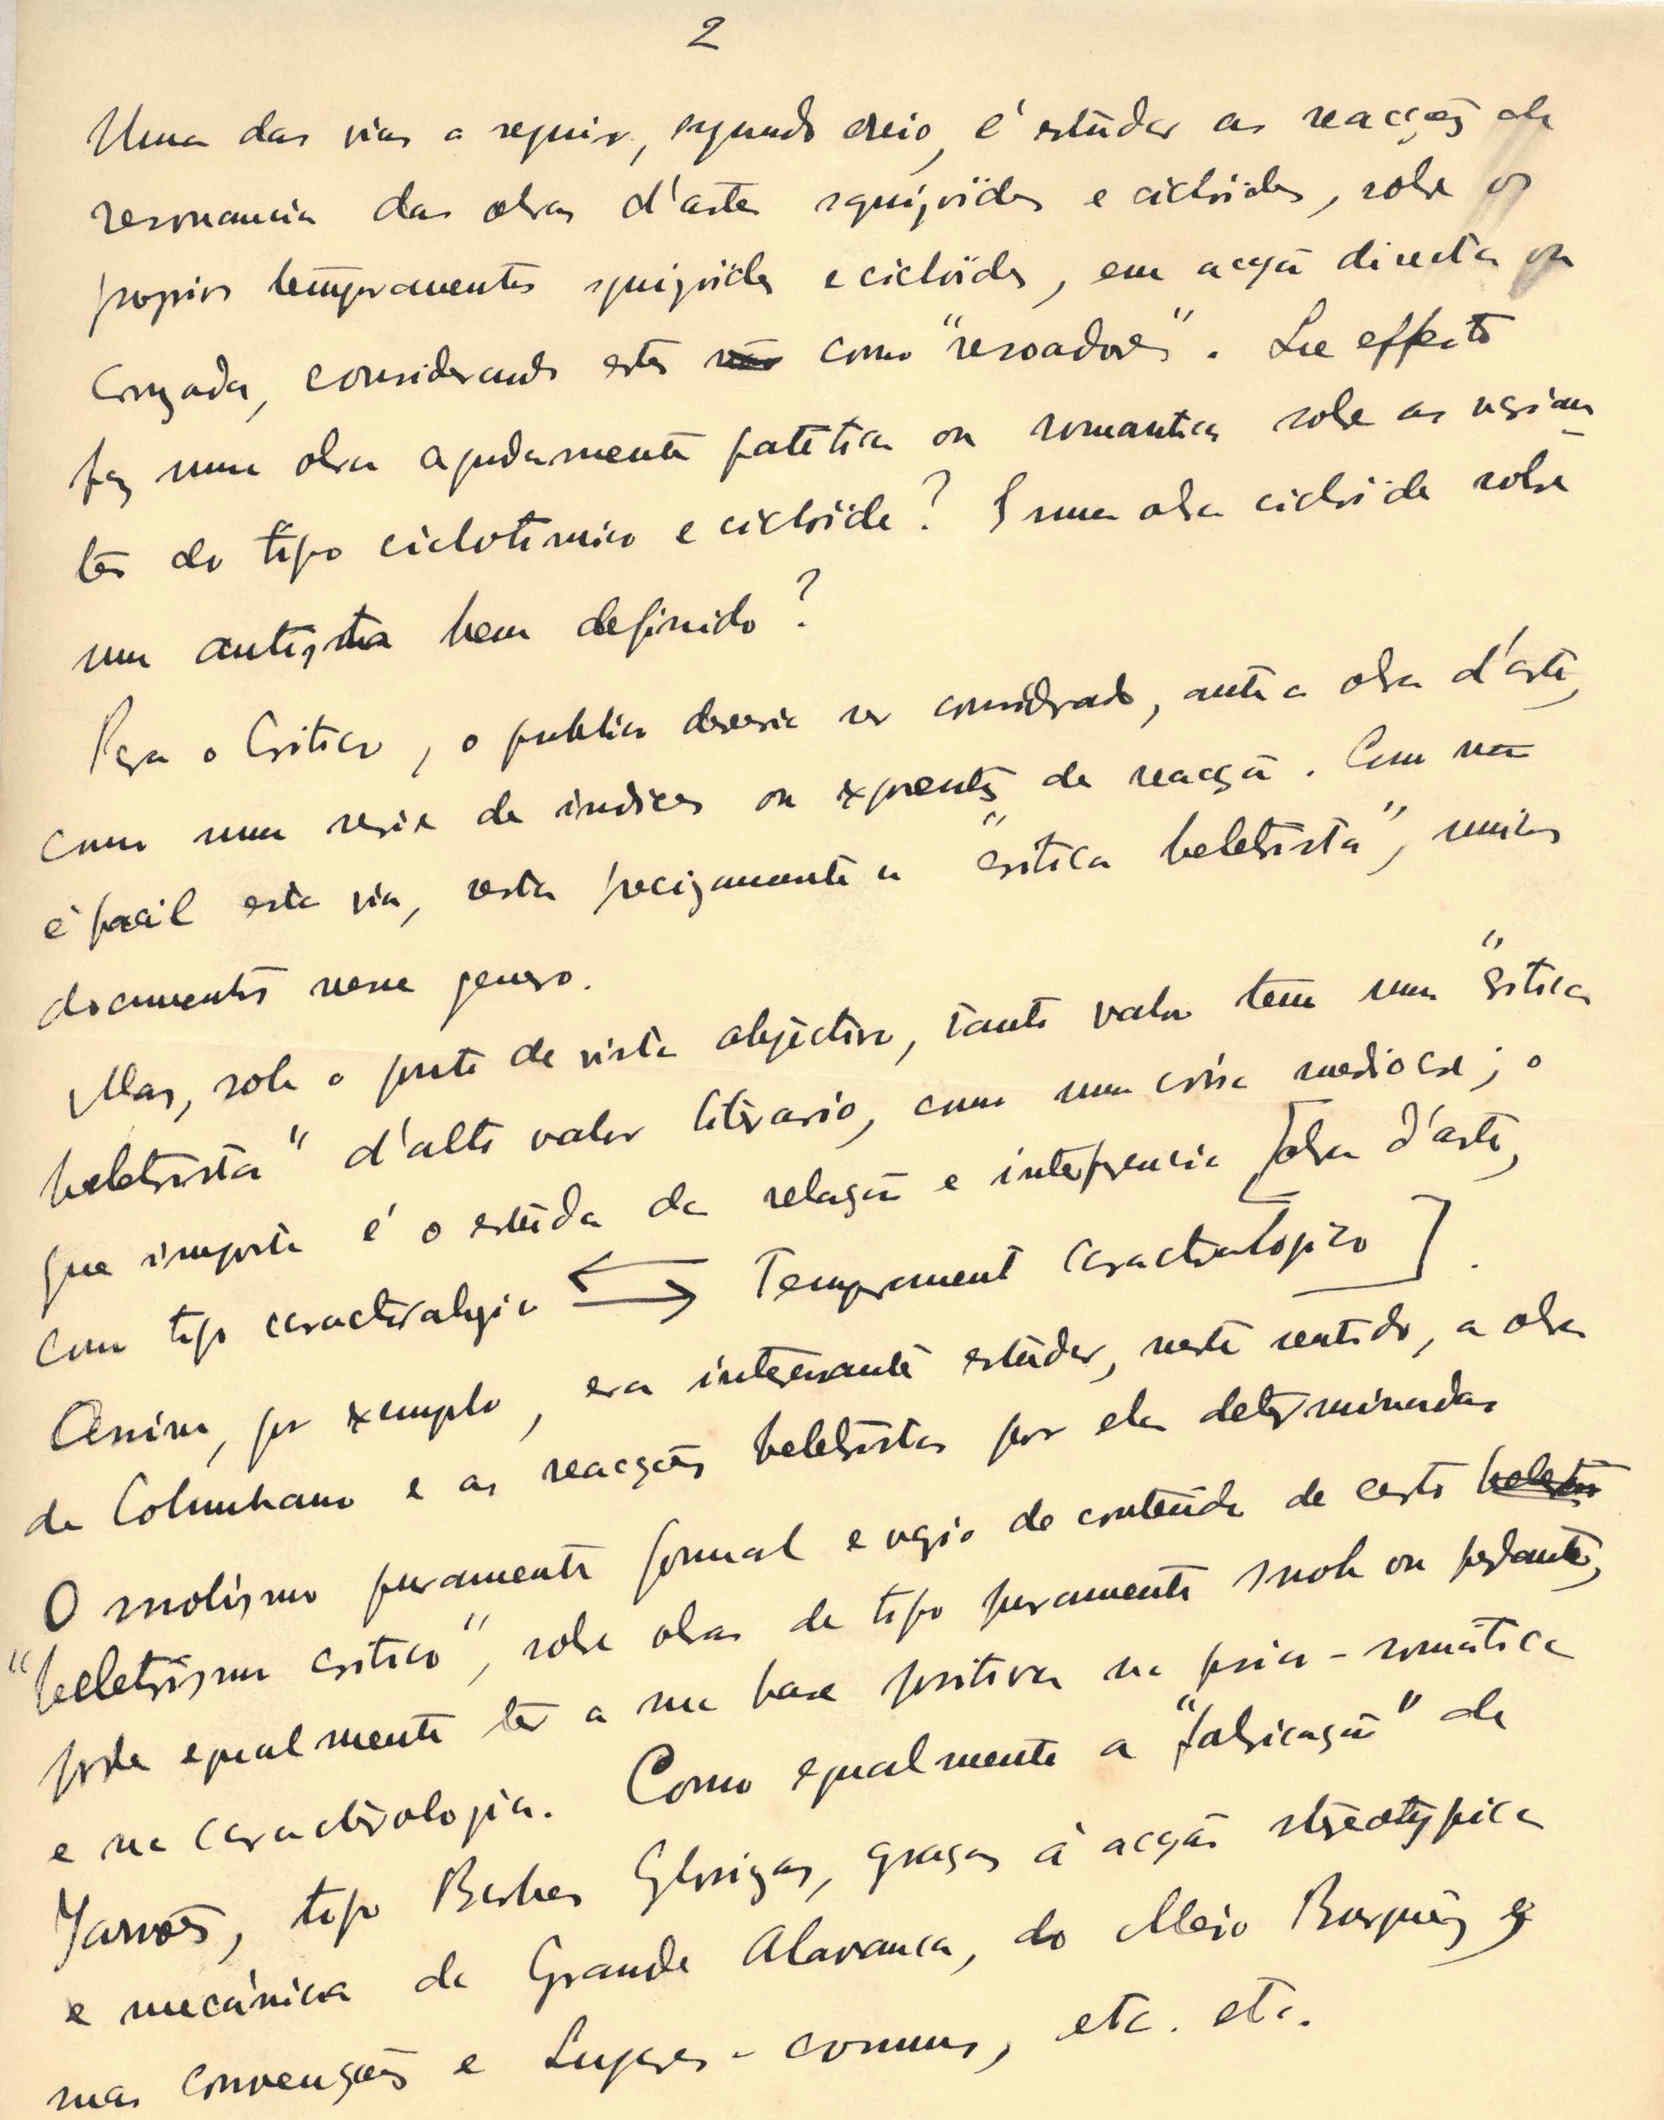 2
Uma das vias a seguir, segundo creio, é estudar as reacções de
resonancia das obras d'arte squizoïdes e cicloïdes, sobre os
proprios temperamentos squizoïdes e cicloïdes, em acção directa ou
cruzada, considerando estes como "resoadores". Que effeito
faz uma obra agudamente patetica ou romantica sobre as
tes do tipo ciclotimico e cicloïde? E uma obra cicloide sobre
um autista bem definido?
Para o Critico, o publico deveria ser considerado, ante a obra d'arte,
como uma serie de indices ou expoentes de reacção. Como não
é facil esta via, resta precizamente a "critica beletrista", muitos
documentos nesse genero.
Mas, sob o ponto de vista objectivo, tanto valor tem uma "critica
beletrista" d'alto valor literario, como uma coisa mediocre; o
que importa é o estudo da relação e interferencia [obra d'arte,
com tipo caracterologico ⇄ Temperament caracterologico].
Assim, por exemplo, era interessante estudar, neste sentido, a obra
de Columbano e as reacções beletristas por ela determinadas
O snobismo puramente formal e vasio de conteúdo de certo
"beletrismo critico", sobre obras de tipo puramente snob ou pedante,
pode egualmente ter a sua base positiva na psico-somática
e na caracterologia. Como egualmente a "fabricação" de
Jarrões, tipo Barbas Glorizas, graças á acção stereotypica
e mecánica da Grande Alavanca, do Meio Burguês e
mas convenções e Lugares-comuns, etc. etc.